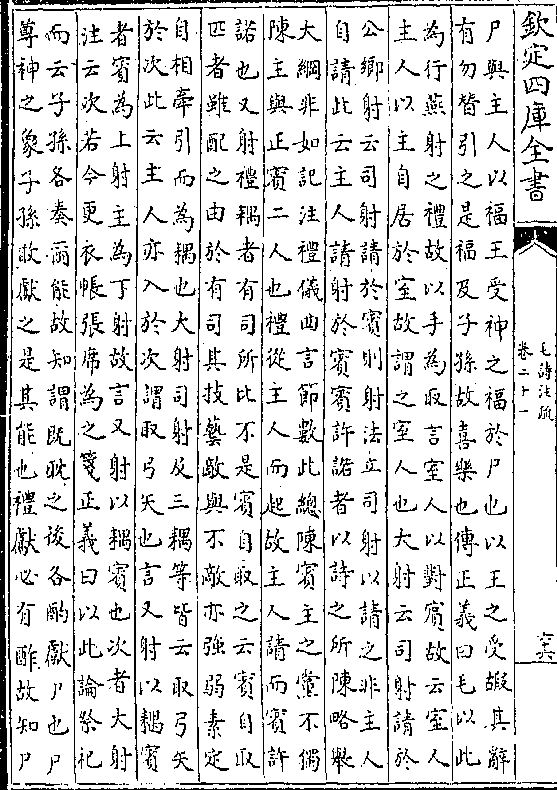 欽定四庫全書
毛詩注疏
卷二十一
尸與主人以福王受神之福於尸也以王之受嘏其辭
有勿替引之是福及子孫故喜樂也傳正義曰毛以此
為行燕射之禮故以手為取言室人以對賓故云室人
主人以主自居於室故謂之室人也大射云司射請於
公鄉射云司射請於賓則射法立司射以請之非主人
自請此云主人請射於賓賓許諾者以詩之所陳略舉
大綱非如記注禮儀曲言節數此總陳賓主之黨不獨
陳主與正賓二人也禮從主人而起故主人請而賓許
諾也又射禮耦者有司所比不是賓自取之云賓自取
匹者雖配之由於有司其技藝敵與不敵亦強弱素定
自相牽引而為耦也大射司射及三耦等皆云取弓矢
於次此云主人亦入於次謂取弓矢也言又射以耦賓
者賓為上射主為下射故言又射以耦賓也次者大射
注云次若今更衣帳張席為之箋正義曰以此論祭祀
而云子孫各奏爾能故知謂既耽之後各酌獻尸也尸
尊神之象子孫敢獻之是其能也禮獻必有酢故知尸